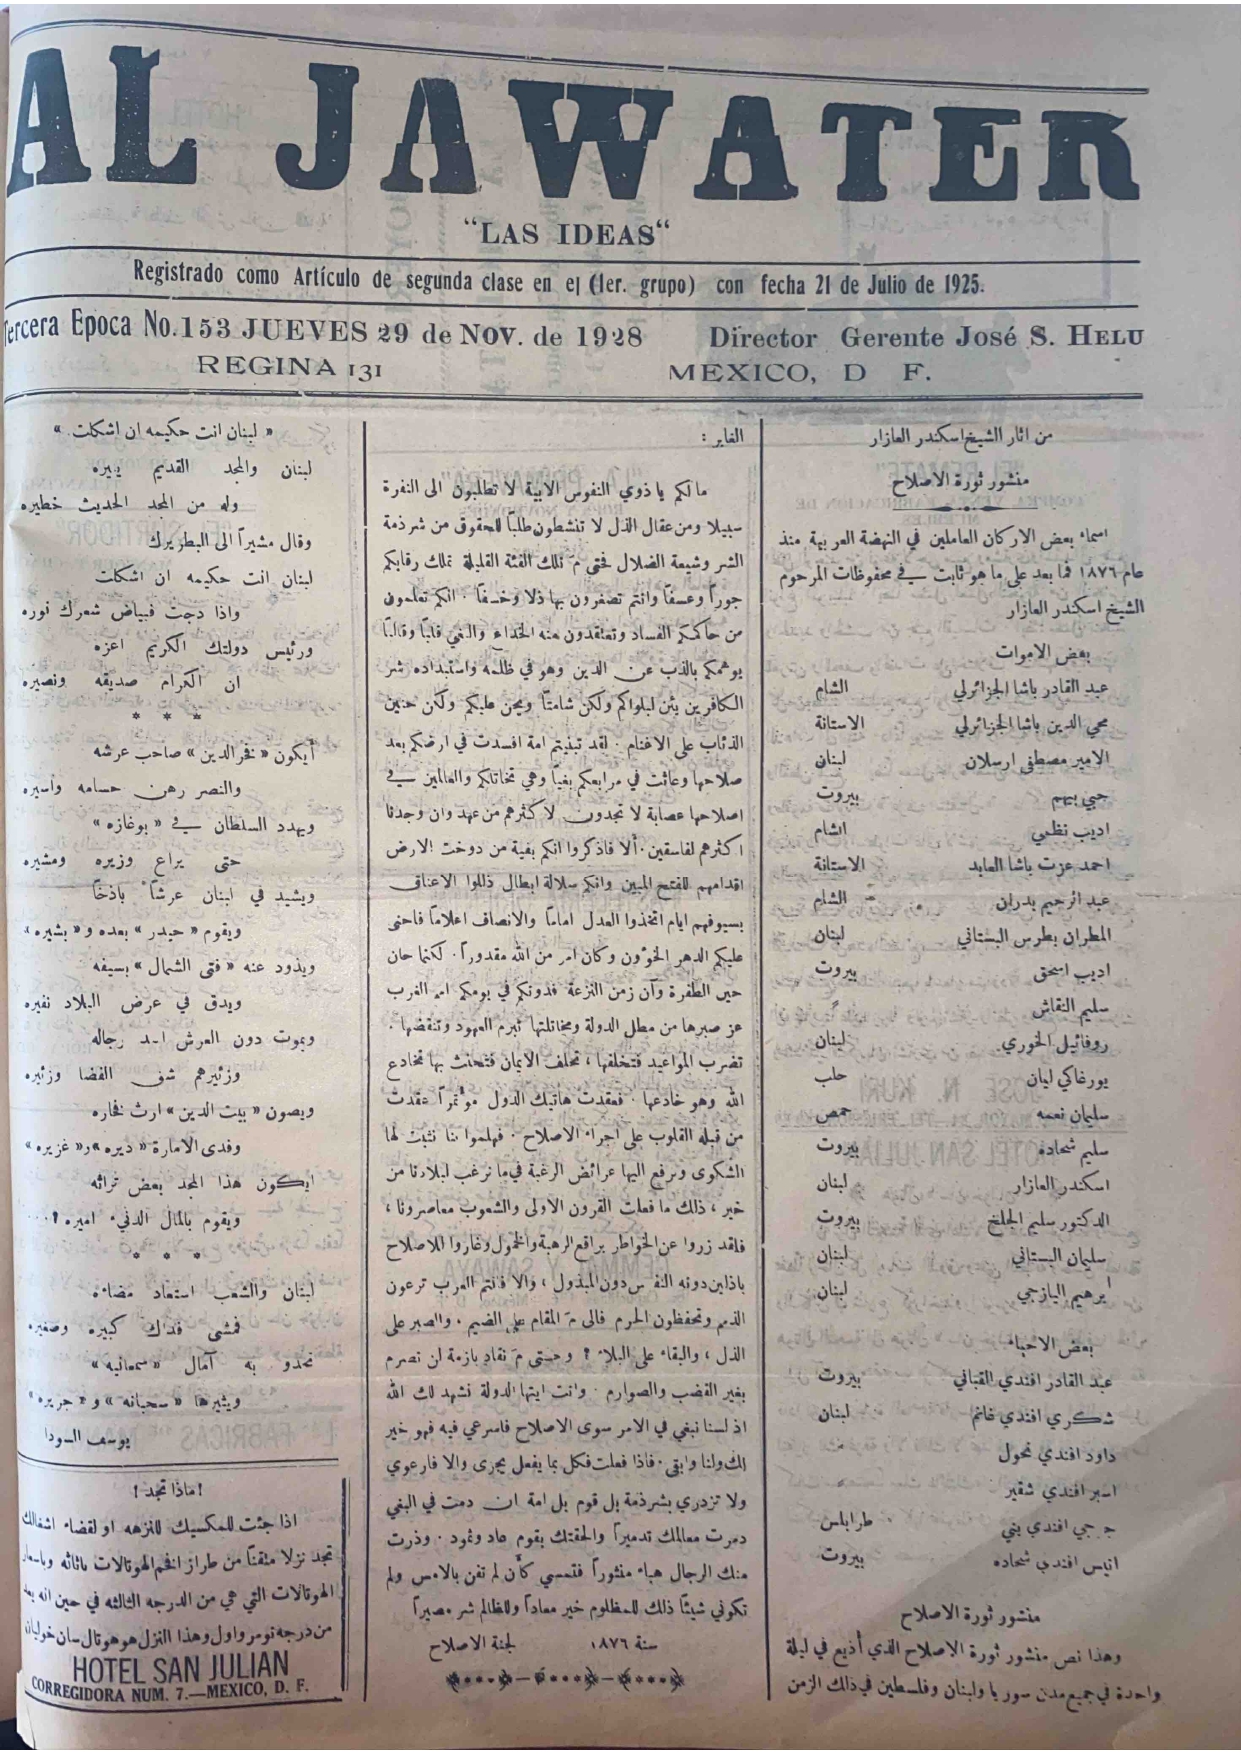 AL JAWATER
"LAS IDEAS"
Registrado como Artículo de segunda clase en el (1er. grupo) con fecha 21 de Julio de 1925.
Tercera Epoca No. 153 JUEVES 29 de Nov. de 1928 Director Gerente José S. HELU
REGINA 131 MEXICO, D F.
من اثار الشيخ اسكندر العازار
منشور ثورة الاصلاح
اسماء بعض الاركان العاملين في النهضة العربية منذ
عام ١٨٧٦ فما بعد على ما هو ثابت في محفوظات المرحوم
الشيخ اسكندر العازار
بعض الاموات
عبد القادر باشا الجزائرلي الشام
محي الدين باشا الجزائرلي الاستانة
الامير مصطفى ارسلان لبنان
حبي بيهم بيروت
اديب نظمي الشام
احمد عزت باشا العابد الاستانة
عبد الرحيم بدران الشام
المطران بطرس البستاني لبنان
اديب اسحق بيروت
سليم النقاش
روفائيل الخوري لبنان
يورغاكي ليان حلب
سليمان نعمه حمص
سليم شحاده بيروت
اسكندر العازار لبنان
الدكتور سليم الجلخ بيروت
سليمان البستاني لبنان
ابرهيم اليازجي لبنان
بعض الاحياء
عبد القادر افندي القباني بيروت
شكري افندي غانم لبنان
داود افندي نحول
اسبر افندي شقير
جرجي افندي يني طرابلس
انيس افندي شحاده بيروت
منشور ثورة الاصلاح
وهذا نص منشور ثورة الاصلاح الذي أذيع في ليلة
واحدة في جميع مدن سوريا ولبنان وفلسطين في ذلك الزمن
الغابر :
ما لكم يا ذوي النفوس الابية لا تطلبون الى النفرة
سبيلا ومن عقال الذل لا تنشطون طلباً للحقوق من شرذمة
الشر وشيعة الضلال فحتى مَ تلك الفئة القليلة تملك رقابكم
جوراً وعسفاً وانتم تصغرون بها ذلا وخسفاً . انكم تعلمون
من حاكمكم الفساد وتعتقدون منه الخداع والبغي قلباً وقالباً
يوهمكم بالذب عن الدين وهو في ظلمه واستبداده شر
الكافرين يئن لبلواكم ولكن شامتاً ويحن عليكم ولكن حنين
الذئاب على الاغنام . لقد تبذيتم امة افسدت في ارضكم بعد
صلاحها وعاثت في مرابعكم بغياً وهي تخاتلكم والعالمين في
اصلاحها عصابة لا تجدون لاكثرهم من عهد وان وجدنا
اكثرهم لفاسقين . ألا فاذكروا انكم بقية من دوخت الارض
اقدامهم للفتح المبين وانكم سلالة ابطال ذللوا الاعناق
بسيوفهم ايام اتخذوا العدل اماماً والانصاف اعلاماً فاحنى
عليكم الدهر الخؤون وكان امر من الله مقدوراً . لكنما حان
حين الطفرة وآن زمن النزعة فدونكم في يومكم امم الغرب
عز صبرها من مطل الدولة ومخاتلتها تبرم العهود وتنقضها .
تضرب المواعيد فتخلفها ، تحلف الايمان فتحنث بها تخادع
الله وهو خادعها . فعقدت هاتيك الدول مؤتمراً عقدت
من قبله القلوب على اجراء الاصلاح . فهلموا بنا نثبت لها
الشكوى ونرفع اليها عرائض الرغبة في ما نرغب لبلادنا من
خير ، ذلك ما فعلت القرون الاولى والشعوب معاصرونا ،
فلقد زروا عن الخواطر براقع الرهبة والخمول وغاروا للاصلاح
باذلين دونه النفس دون المبذول ، والا فانتم العرب ترعون
الذمم وتحفظون الحرم فالى مَ المقام على الضيم . والصبر على
الذل ، والبقاء على البلاء ؟ وحتى مَ نقاد بازمة لن تصرم
بغير القضب والصوارم . وانت ايتها الدولة نشهد لك الله
اذ لسنا نبغي في الامر سوى الاصلاح فاسرعي فيه فهو خير
لك ولنا وابقى . فاذا فعلت فكل بما يفعل يجزى والا فارعوي
ولا تزدري بشرذمة بل قوم بل امة ان دمت في البغي
دمرت معالمك تدميراً والحقتك بقوم عاد وثمود . وذرت
منك الرجال هباء منثوراً فتمسي كأن لم تغن بالامس ولم
تكوني شيئاً ذلك للمظلوم خير معاداً وللظالم شر مصيراً
سنة ١٨٧٦ لجنة الاصلاح
« لبنان انت حكيمه ان اشكلت »
لبنان والمجد القديم ينيره
وله من المجد الحديث خطيره
وقال مشيراً الى البطريرك
لبنان انت حكيمه ان اشكلت
واذا دجت فبياض شعرك نوره
ورئيس دولتك الكريم اعزه
ان الكرام صديقه ونصيره
* * *
أيكون « فخر الدين » صاحب عرشه
والنصر رهن حسامه وأسيره
ويهدد السلطان في « بوغازه »
حتى يراع وزيره ومشيره
ويشيد في لبنان عرشاً باذخاً
ويقوم « حيدر » بعده و« بشيره »
ويذود عنه « فتى الشمال » بسيفه
ويدق في عرض البلاد نفيره
ويموت دون العرش اسد رجاله
وزئيرهم شق الفضا وزئيره
ويصون « بيت الدين » ارث فخاره
وفدى الامارة « ديره » و« غزيره »
ايكون هذا المجد بعض تراثه
ويقوم بالمال الدنيء اميره ؟....
* * *
لبنان والشعب استعاد مضاءه
فمشى فداك كبيره وصغيره
تحدو به آمال « سمعانيه »
ويثيرها « سحبانه » و« جريره »
يوسف السودا
! ماذا تجد !
اذا جئت للمكسيك للنزهه او لقضاء اشغالك
تجد نزلا متقناً من طراز افخم الهوتالات باثاثه وباسعار
الهوتالات التي هي من الدرجه الثالثه في حين انه يعد
من درجه نومر واول وهذا النزل هو هوتال سان خوليان
HOTEL SAN JULIAN
CORREGIDORA NUM. 7.—MEXICO, D. F.